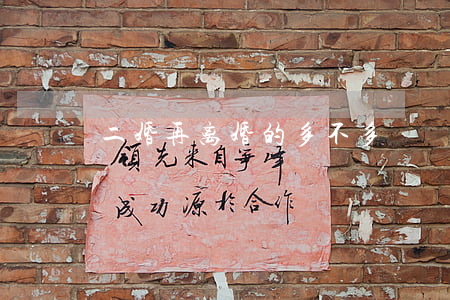 二婚再离婚的多不多
领先来自争峰
成功源於合作